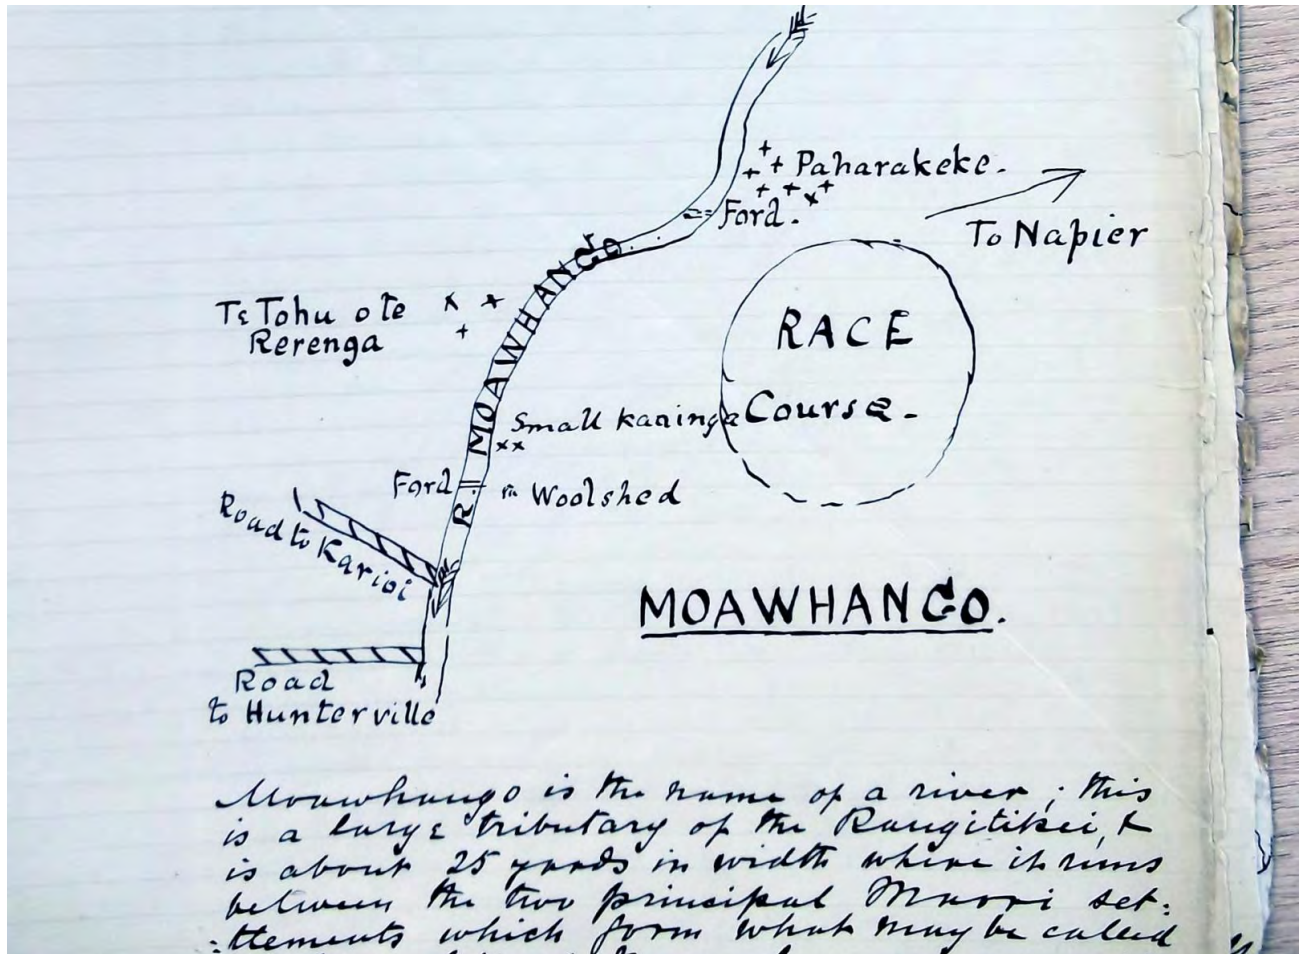 Paharakeke.
Ford.
To Napier
R. MOAWHANGO.
Te Tohu o te
Rerenga
RACE
Course.
Small kaainga
Ford
Woolshed
Road to Karioi
MOAWHANGO.
Road
to Hunterville
Moawhango is the name of a river; this
is a large tributary of the Rangitikei, &
is about 25 yards in width where it runs
between the two principal Maori set:
:tlements which form what may be called